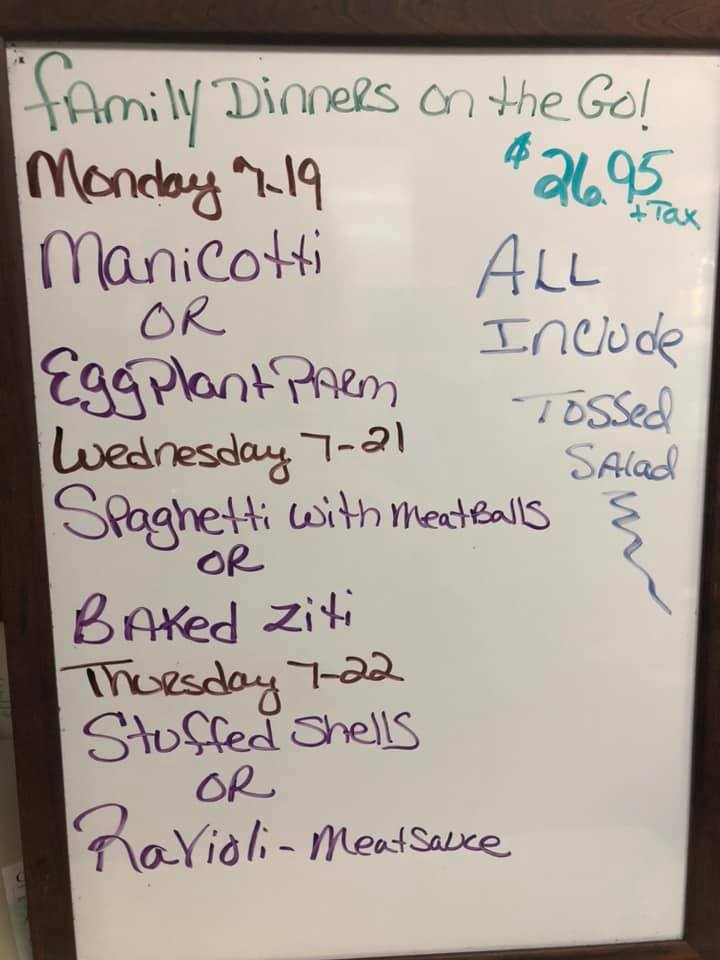 Family Dinners on the Go!
Monday 7-19
$26.95
+ Tax
Manicotti
OR
Eggplant Parm
Wednesday 7-21
Spaghetti with Meatballs
OR
Baked Ziti
Thursday 7-22
Stuffed Shells
OR
Ravioli - Meat Sauce
ALL
Include
Tossed
Salad